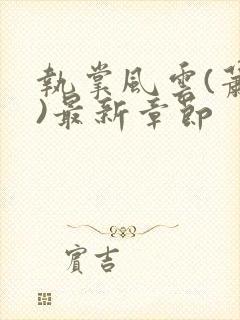 執掌風雲(蕭
)最新章節
賓吉